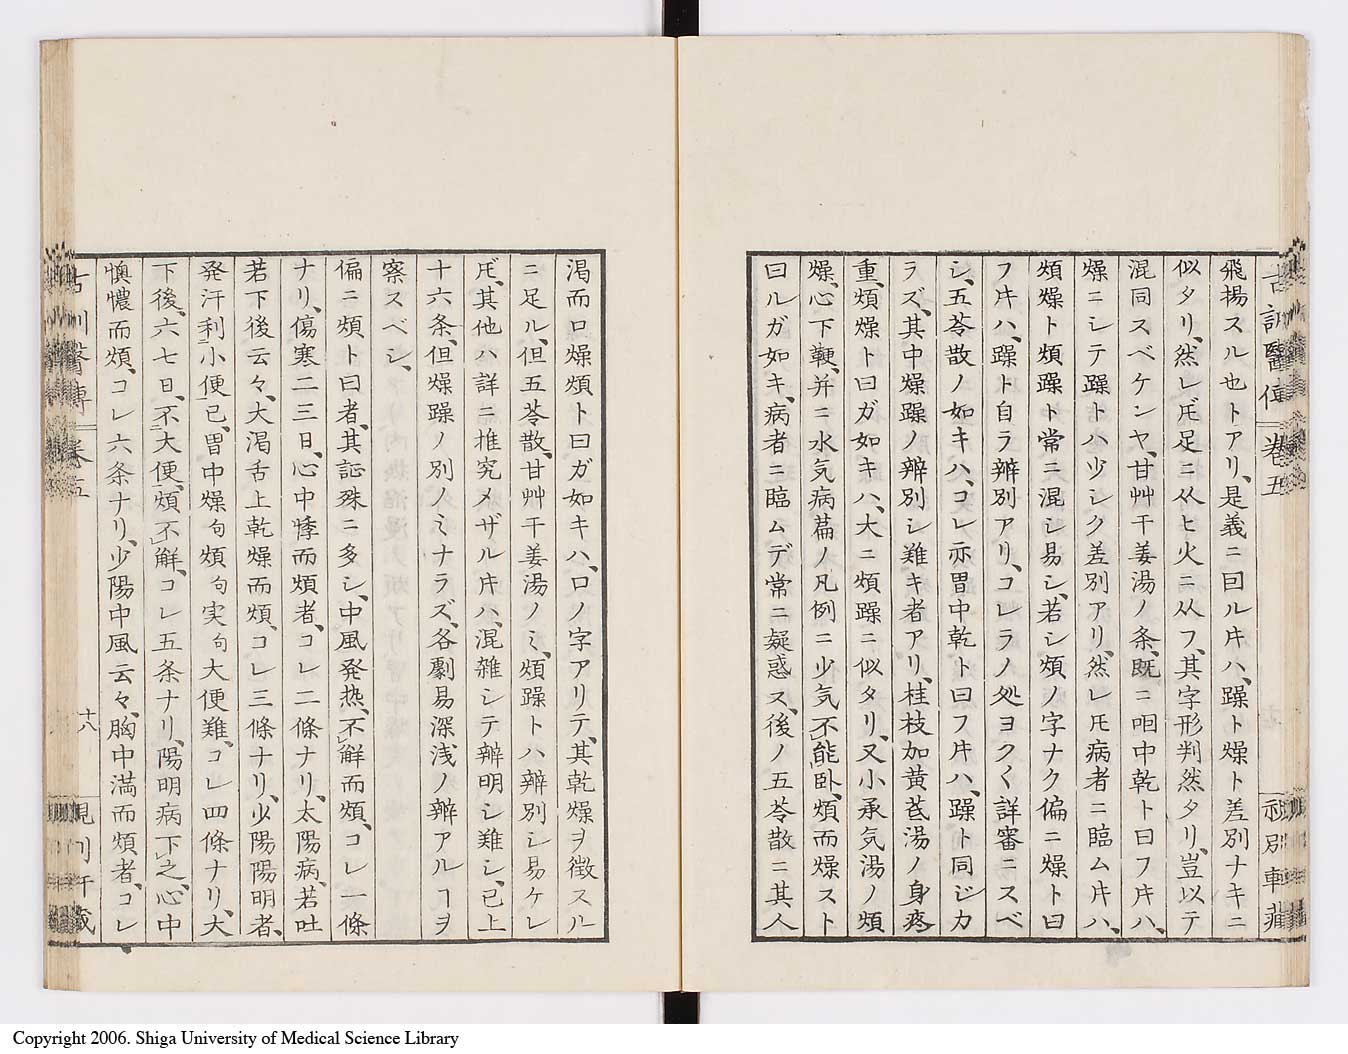 飛揚スル也トアリ、是義ニ曰ル𪜈ハ、躁ト燥ト差別ナキニ
似タリ、然レ𪜈足ニ从ヒ火ニ从フ、其字形判然タリ、豈以テ
混同スベケンヤ、甘艸干姜湯ノ条、既ニ咽中乾ト曰フ𪜈ハ、
燥ニシテ躁トハ少シク差別アリ、然レ𪜈病者ニ臨ム𪜈ハ、
煩燥ト煩躁ト常ニ混シ易シ、若シ煩ノ字ナク偏ニ燥ト曰
フ𪜈ハ、躁ト自ラ辨別アリ、コレラノ処ヨク〱詳審ニスベ
シ、五苓散ノ如キハ、コレ亦胃中乾ト曰フ𪜈ハ、躁ト同ジカ
ラズ、其中燥躁ノ辨別シ難キ者アリ、桂枝加黄芪湯ノ身疼
重、煩燥ト曰ガ如キハ、大ニ煩躁ニ似タリ、又小承気湯ノ煩
燥、心下鞕、并ニ水気病萹ノ凡例ニ少気、不能臥、煩而燥スト
曰ルガ如キ、病者ニ臨ムデ常ニ疑惑ス、後ノ五苓散ニ其人
古訓醫傳 卷五
渇而口燥煩ト曰ガ如キハ、口ノ字アリテ、其乾燥ヲ徴スル
ニ足ル、但五苓散、甘艸干姜湯ノミ、煩躁トハ辨別シ易ケレ
𪜈、其他ハ詳ニ推究メザル𪜈ハ、混雑シテ辨明シ難シ、已上
十六条、但燥躁ノ別ノミナラズ、各劇易深浅ノ辨アルヿヲ
察スベシ、
偏ニ煩ト曰者、其証殊ニ多シ、中風発热、不解而煩、コレ一條
ナリ、傷寒二三日、心中悸而煩者、コレ二條ナリ、太陽病、若吐
若下後云々、大渇舌上乾燥而煩、コレ三條ナリ、少陽陽明者、
発汗利小便已、胃中燥句煩句実句大便難、コレ四條ナリ、大
下後、六七日、不大便、煩不解、コレ五条ナリ、陽明病下之、心中
懊憹而煩、コレ六条ナリ、少陽中風云々、胸中満而煩者、コレ
古訓醫傳 卷五 十八
Copyright 2006. Shiga University of Medical Science Library